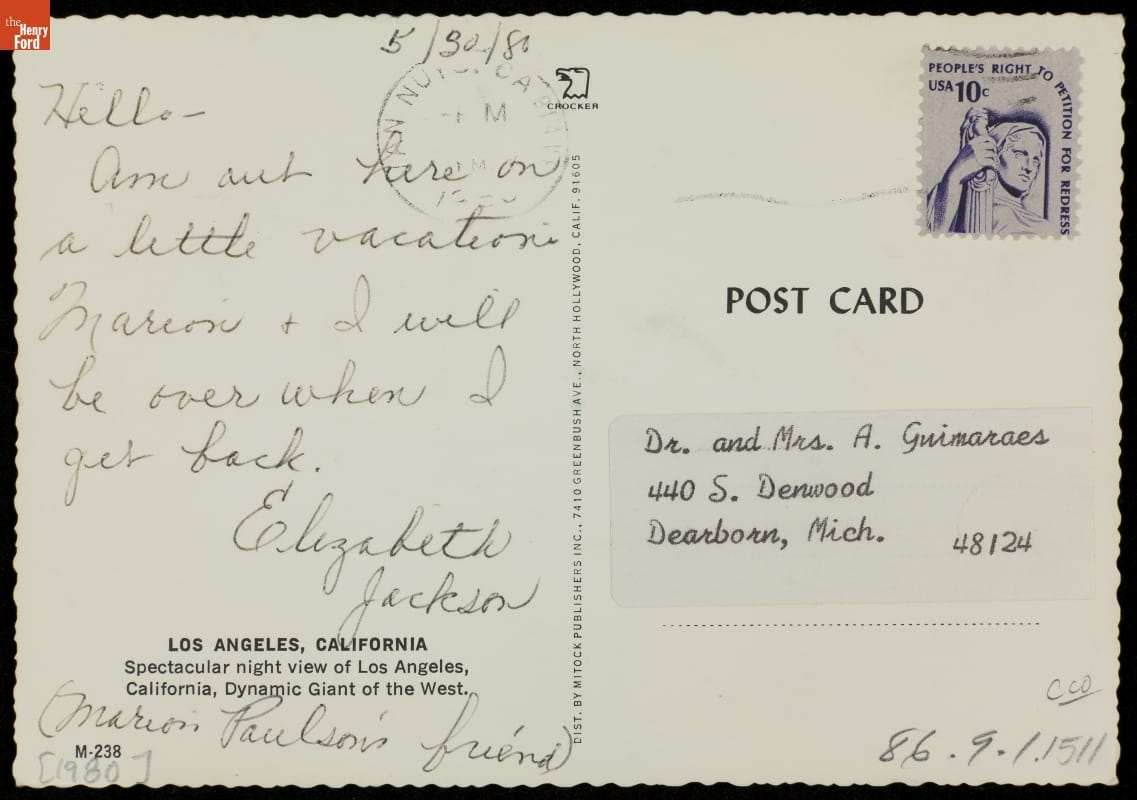 the
Henry
Ford
5/30/80
Hello-
Am out here on
a little vacation.
Marion + I will
be over when I
get back.
Elizabeth
Jackson
LOS ANGELES, CALIFORNIA
Spectacular night view of Los Angeles,
California, Dynamic Giant of the West.
(Marion Paulson's friend)
M-238
[1980]
VAN NUYS, CA
PM
CROCKER
DIST. BY MITOCK PUBLISHERS INC., 7410 GREENBUSH AVE., NORTH HOLLYWOOD, CALIF. 91605
PEOPLE'S RIGHT TO PETITION FOR REDRESS
USA 10c
POST CARD
Dr. and Mrs. A. Guimaraes
440 S. Denwood
Dearborn, Mich. 48124
86.9.1.1511